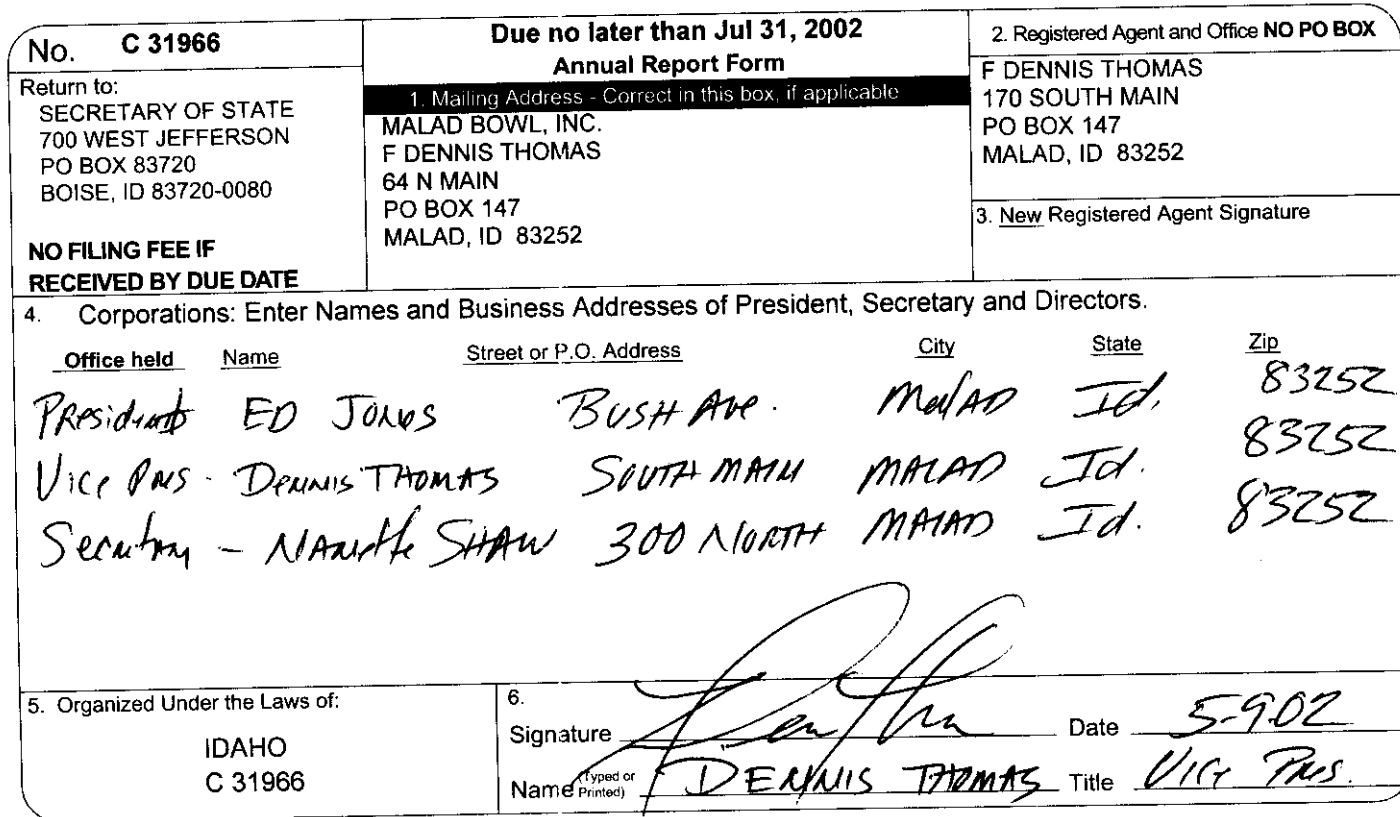 No. C 31966
Return to:
SECRETARY OF STATE
700 WEST JEFFERSON
PO BOX 83720
BOISE, ID 83720-0080
NO FILING FEE IF
RECEIVED BY DUE DATE
Due no later than Jul 31, 2002
Annual Report Form
1. Mailing Address - Correct in this box, if applicable
MALAD BOWL, INC.
F DENNIS THOMAS
64 N MAIN
PO BOX 147
MALAD, ID 83252
2. Registered Agent and Office NO PO BOX
F DENNIS THOMAS
170 SOUTH MAIN
PO BOX 147
MALAD, ID 83252
3. New Registered Agent Signature
4. Corporations: Enter Names and Business Addresses of President, Secretary and Directors.
Office held Name Street or P.O. Address City State Zip
President ED JONES BUSH Ave. MalAD Id. 83252
Vice Pres - DENNIS THOMAS SOUTH MAIN MALAD Id. 83252
Secretary - NANette SHAW 300 NORTH MALAD Id. 83252
5. Organized Under the Laws of:
IDAHO
C 31966
6.
Signature Date 5-9-02
Name (Typed or Printed) DENNIS THOMAS Title Vice Pres.